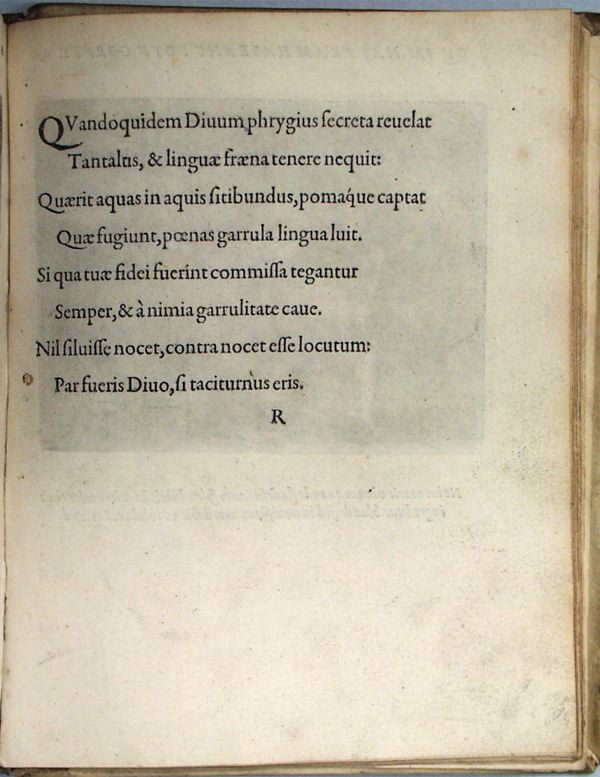 QVandoquidem Diuum phrygius ſecreta reuelat
Tantalus, & linguæ fræna tenere nequit:
Quærit aquas in aquis ſitibundus, pomáque captat
Quæ fugiunt, pœnas garrula lingua luit.
Si qua tuæ fidei fuerint commiſſa tegantur
Semper, & à nimia garrulitate caue.
Nil ſiluiſſe nocet, contra nocet eſſe locutum:
Par fueris Diuo, ſi taciturnus eris.
R